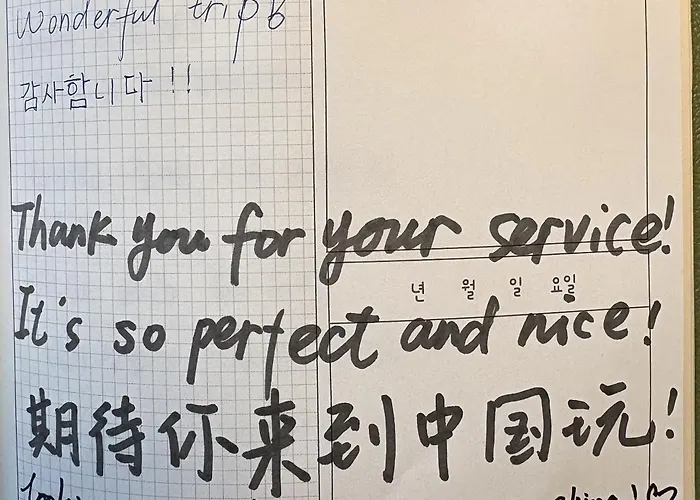 Wonderful trip
감사합니다 !!
Thank you for your service!
년 월 일 요일
It's so perfect and nice!
期待你来到中国玩!